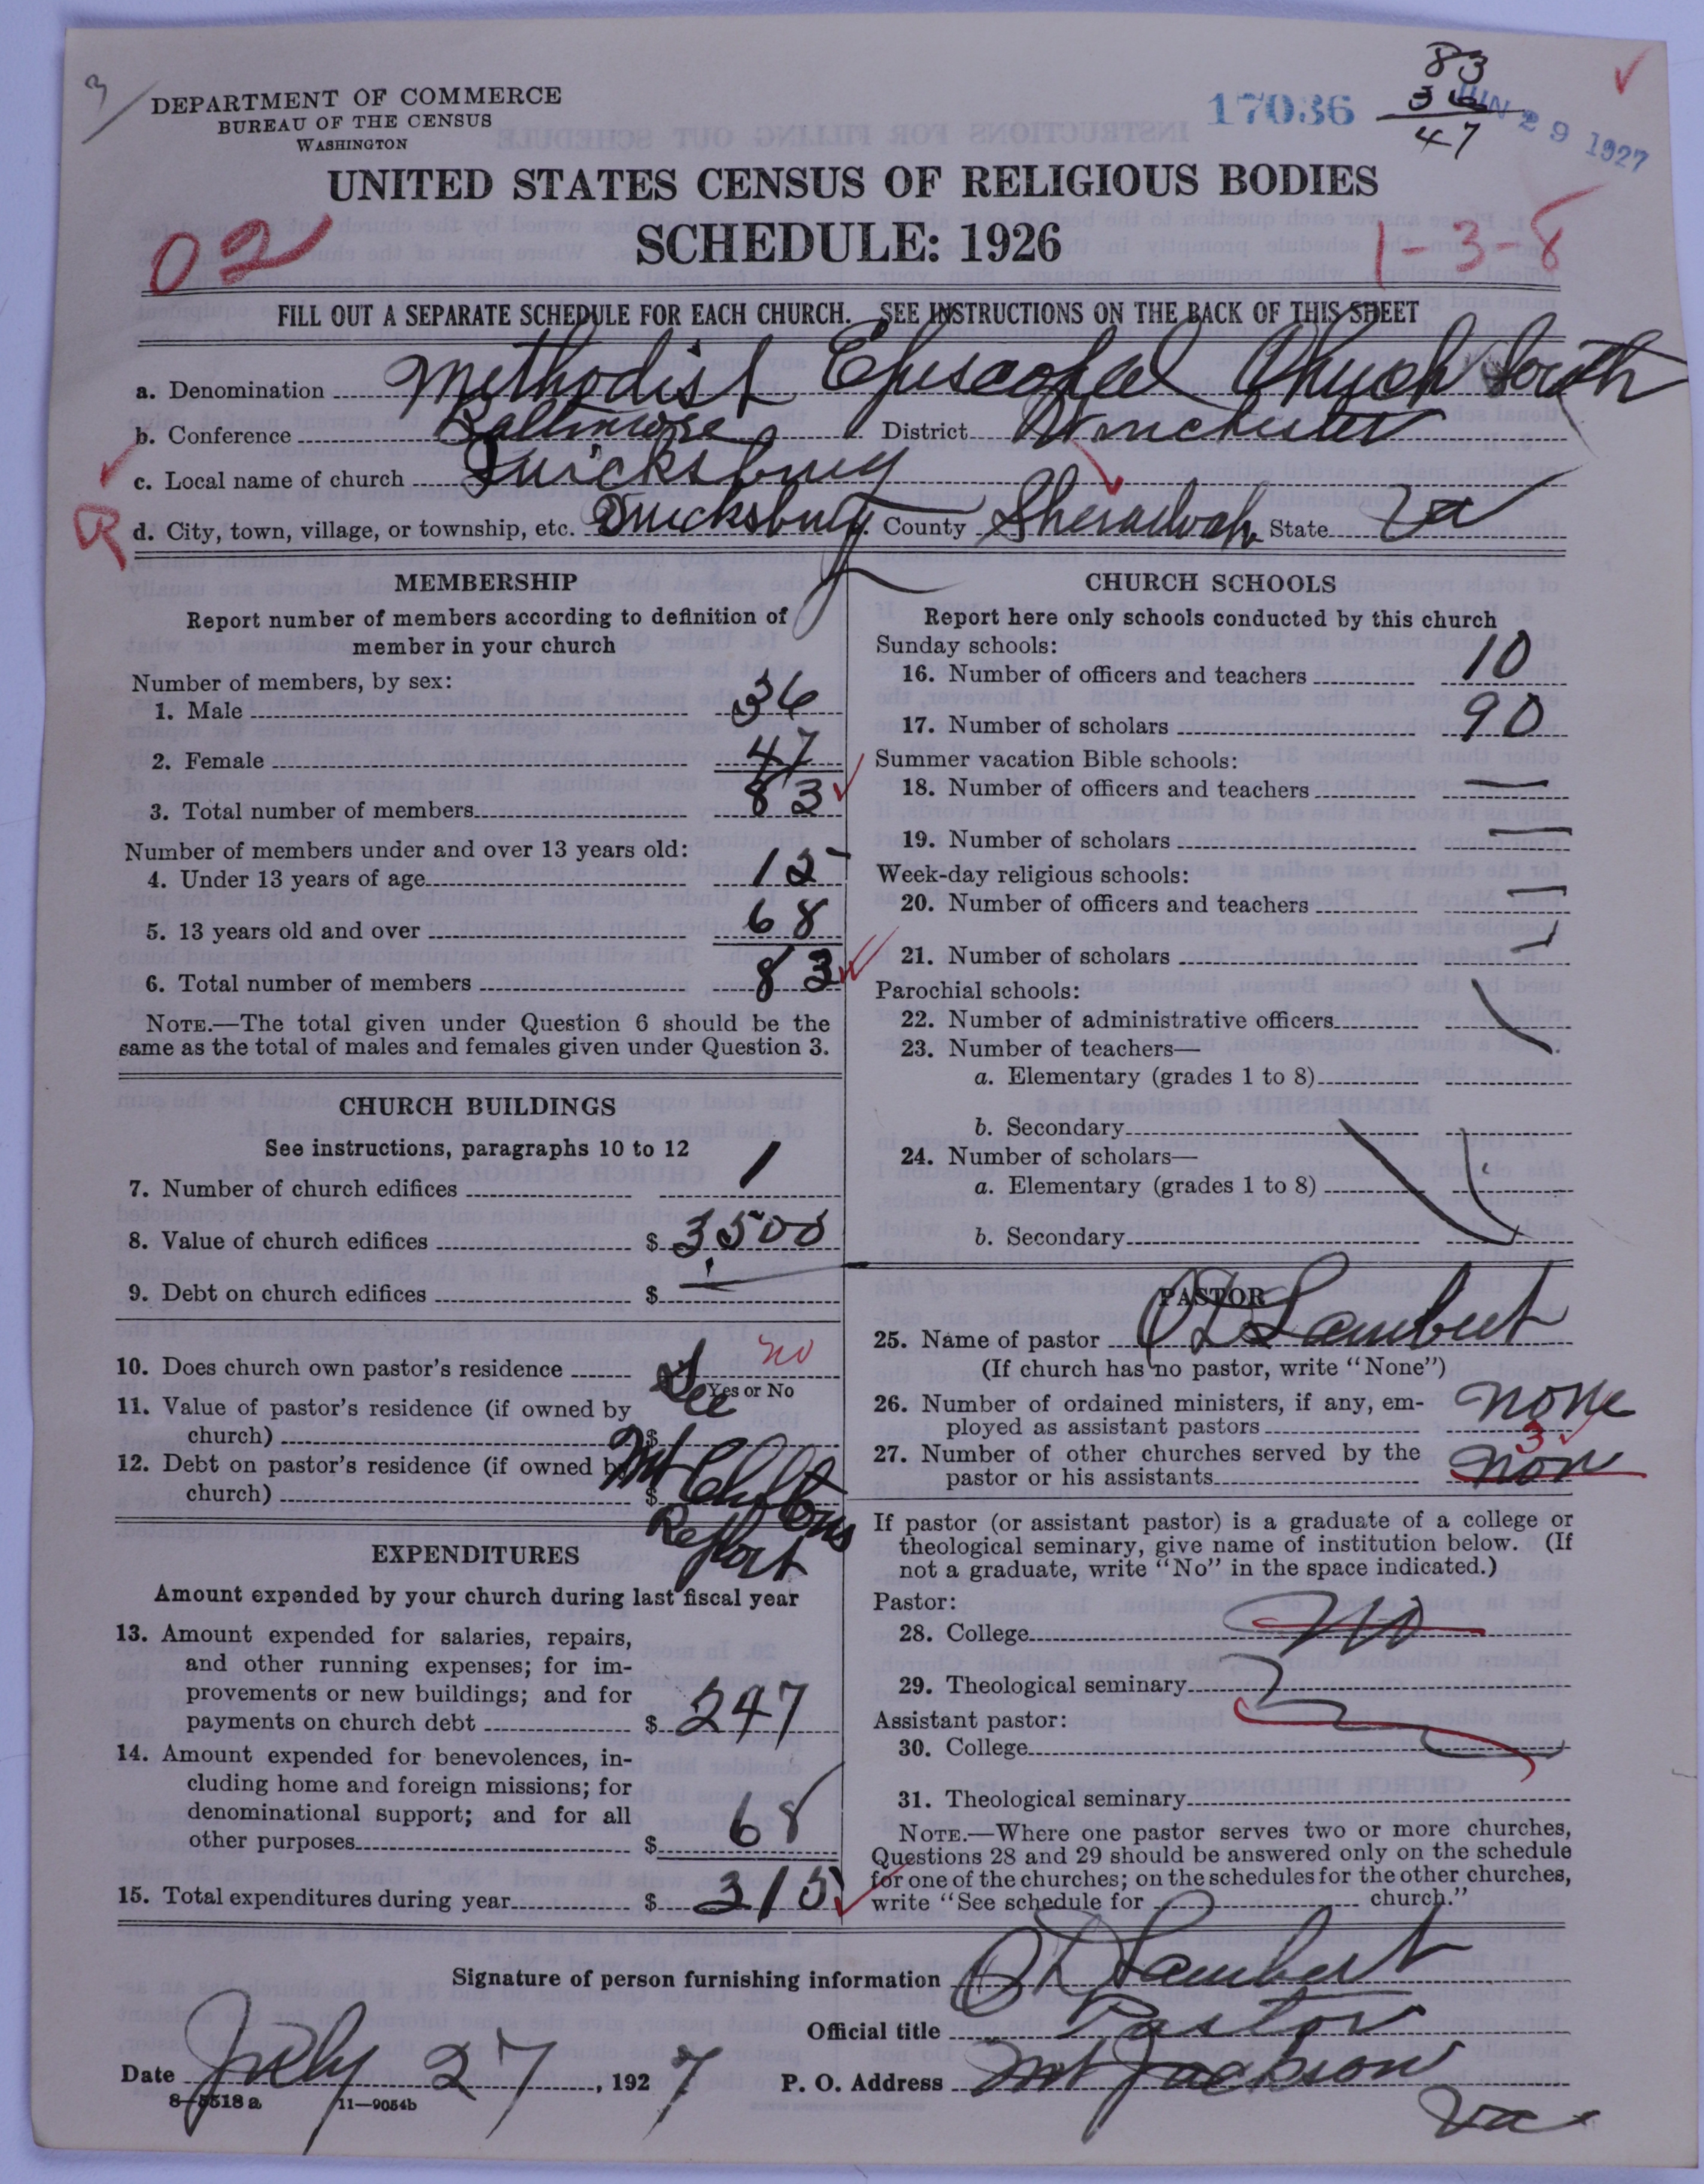 3
83
36
47
17036
JUN 29 1927
DEPARTMENT OF COMMERCE
BUREAU OF THE CENSUS
WASHINGTON
UNITED STATES CENSUS OF RELIGIOUS BODIES
SCHEDULE: 1926
02
1-3-8
FILL OUT A SEPARATE SCHEDULE FOR EACH CHURCH. SEE INSTRUCTIONS ON THE BACK OF THIS SHEET
a. Denomination Methodist Episcopal Church South
b. Conference Baltimore District Winchester
c. Local name of church Quicksburg
R
d. City, town, village, or township, etc. Quicksburg County Shenandoah State Va
MEMBERSHIP
Report number of members according to definition of
member in your church
Number of members, by sex:
1. Male 36
2. Female 47
3. Total number of members 83
Number of members under and over 13 years old:
4. Under 13 years of age 15
5. 13 years old and over 68
6. Total number of members 83
NOTE.—The total given under Question 6 should be the
same as the total of males and females given under Question 3.
CHURCH BUILDINGS
See instructions, paragraphs 10 to 12
7. Number of church edifices 1
8. Value of church edifices $ 3500
9. Debt on church edifices $ —
10. Does church own pastor's residence no
See
Yes or No
11. Value of pastor's residence (if owned by
church) $
12. Debt on pastor's residence (if owned by
church) $
Mt
Report
EXPENDITURES
Amount expended by your church during last fiscal year
13. Amount expended for salaries, repairs,
and other running expenses; for im-
provements or new buildings; and for
payments on church debt $ 247
14. Amount expended for benevolences, in-
cluding home and foreign missions; for
denominational support; and for all
other purposes $ 68
15. Total expenditures during year $ 315
CHURCH SCHOOLS
Report here only schools conducted by this church
Sunday schools:
16. Number of officers and teachers 10
17. Number of scholars 90
Summer vacation Bible schools:
18. Number of officers and teachers —
19. Number of scholars —
Week-day religious schools:
20. Number of officers and teachers —
21. Number of scholars —
Parochial schools:
22. Number of administrative officers
23. Number of teachers—
a. Elementary (grades 1 to 8)
b. Secondary
24. Number of scholars—
a. Elementary (grades 1 to 8)
b. Secondary
PASTOR
25. Name of pastor O L Lambert
(If church has no pastor, write "None")
26. Number of ordained ministers, if any, em-
ployed as assistant pastors none
27. Number of other churches served by the
pastor or his assistants 3 non
If pastor (or assistant pastor) is a graduate of a college or
theological seminary, give name of institution below. (If
not a graduate, write "No" in the space indicated.)
Pastor:
28. College no
29. Theological seminary
Assistant pastor:
30. College
31. Theological seminary
NOTE.—Where one pastor serves two or more churches,
Questions 28 and 29 should be answered only on the schedule
for one of the churches; on the schedules for the other churches,
write "See schedule for church."
Signature of person furnishing information O L Lambert
Official title Pastor
Date July 27, 1927 P. O. Address Mt Jackson
Va
8-5518 a 11—9054b